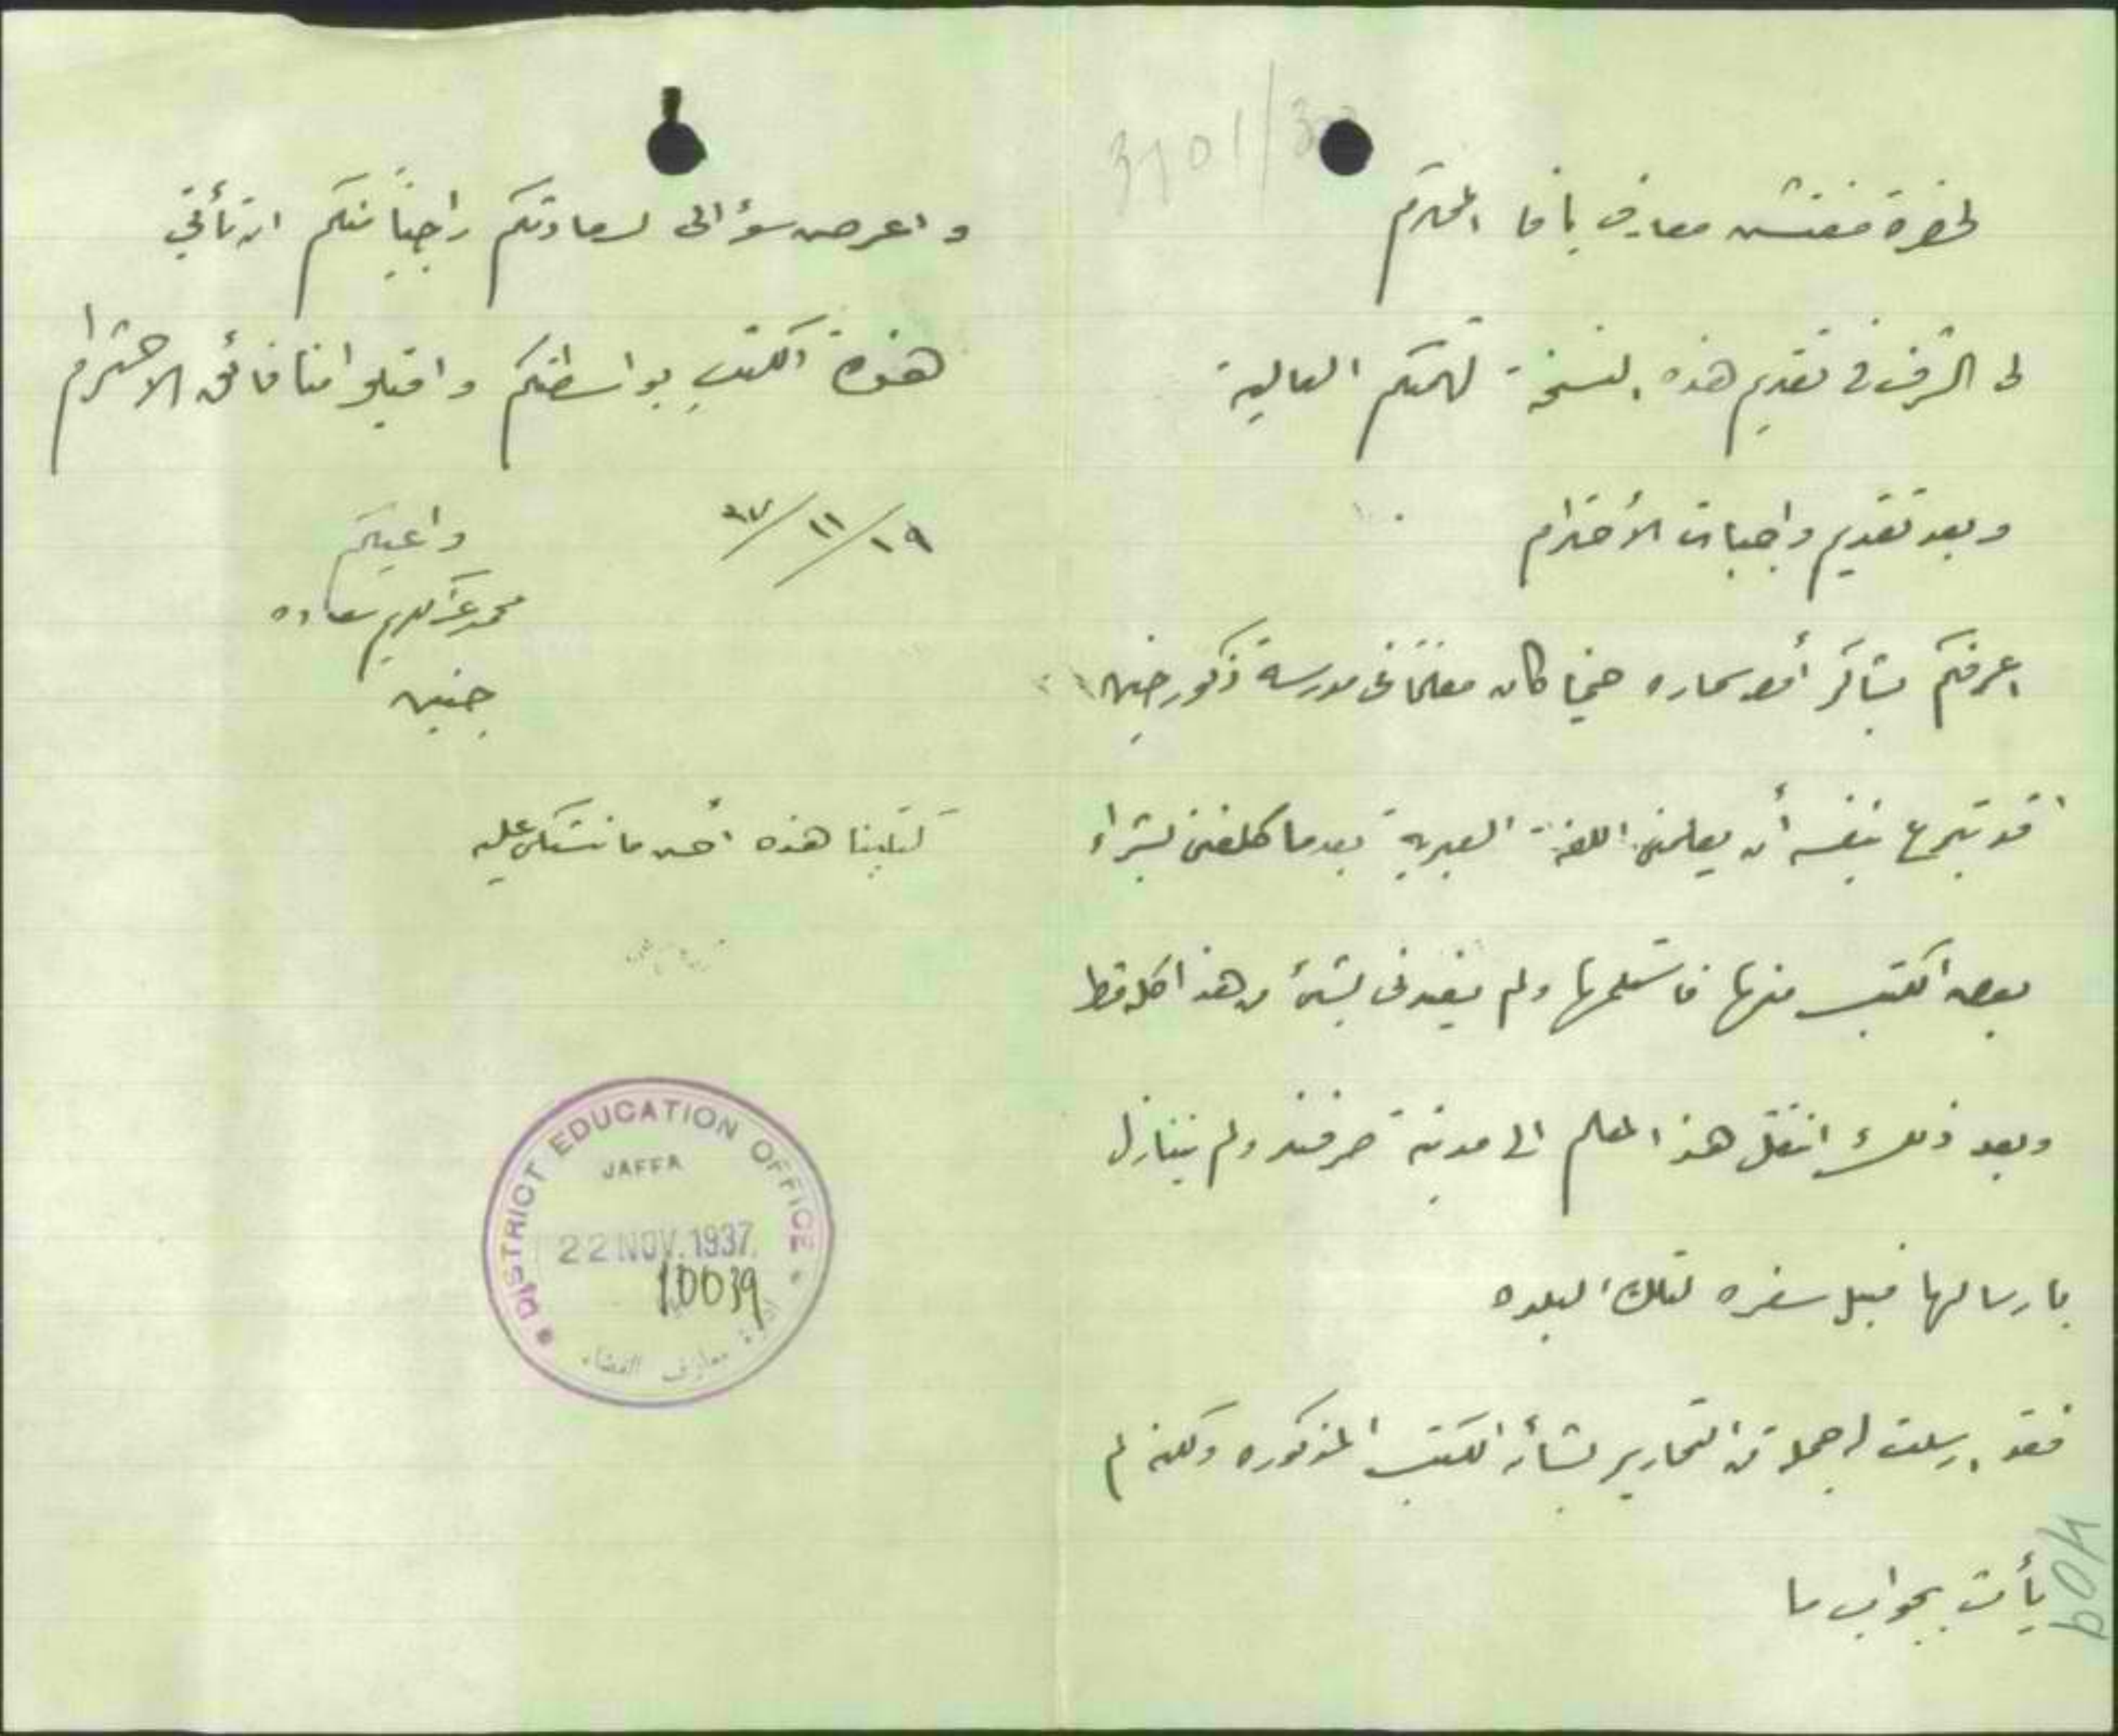 لحضرة مفتش معارف يافا المحترم
لى الشرف فى تقديم هذه النسخة لهمتكم العالية
وبعد تقديم واجبات الأحترام
اعرفكم بشاكر أفندى سماره حينما كان معلمًا فى مدرسة ذكور جنين
قد تبرع بنفسه أن يعلمنى اللغة العبرية بعدما كلفنى بشراء
بعض الكتب منها فاستلمها ولم يفيدنى بشئ من هذا كله قط
وبعد ذلك انتقل هذا المعلم الى مدينة صرفند ولم يتنازل
بارسالها قبل سفره لتلك البلده
فقد ارسلت له جملة من التحارير بشأن الكتب المذكوره ولكنه لم
يأت بجواب ما
واعرض سؤالى لسعادتكم راجيًا منكم ان تأتى
هذه الكتب بواسطتكم واقبلوا منا فائق الاحترام
١٩/١١/٣٧
داعيكم
محمد عبد الكريم سعاده
جنين
كتبنا هذه أحسن ما نشتكى عليه
DISTRICT EDUCATION OFFICE
JAFFA
22 NOV. 1937
10039
معارف القضاء
409